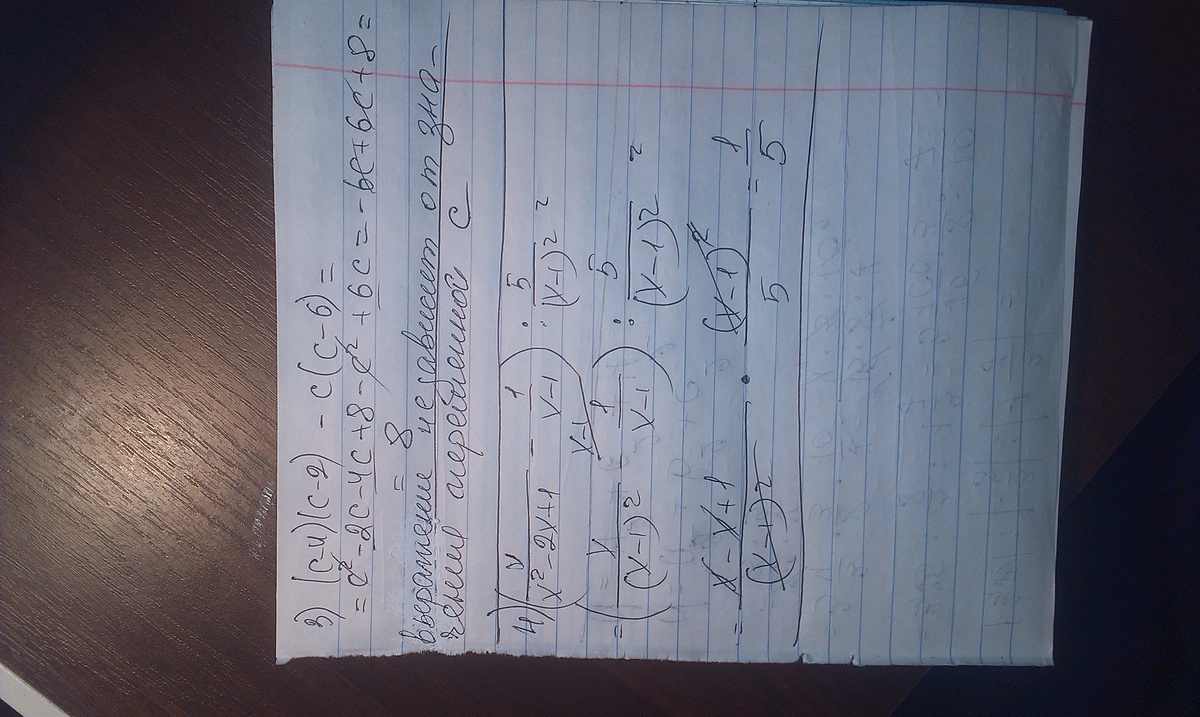 3) (c-4)(c-2) - c(c-6) =
= c² - 2c - 4c + 8 - c² + 6c = -6c + 6c + 8 =
= 8
выражение независит от зна-
чения переменной c
4) (x/(x²-2x+1) - 1/(x-1)) : 5/(x-1)²
= (x/(x-1)² - 1/(x-1)) : 5/(x-1)²
= (x-x+1)/(x-1)² · (x-1)²/5 = 1/5